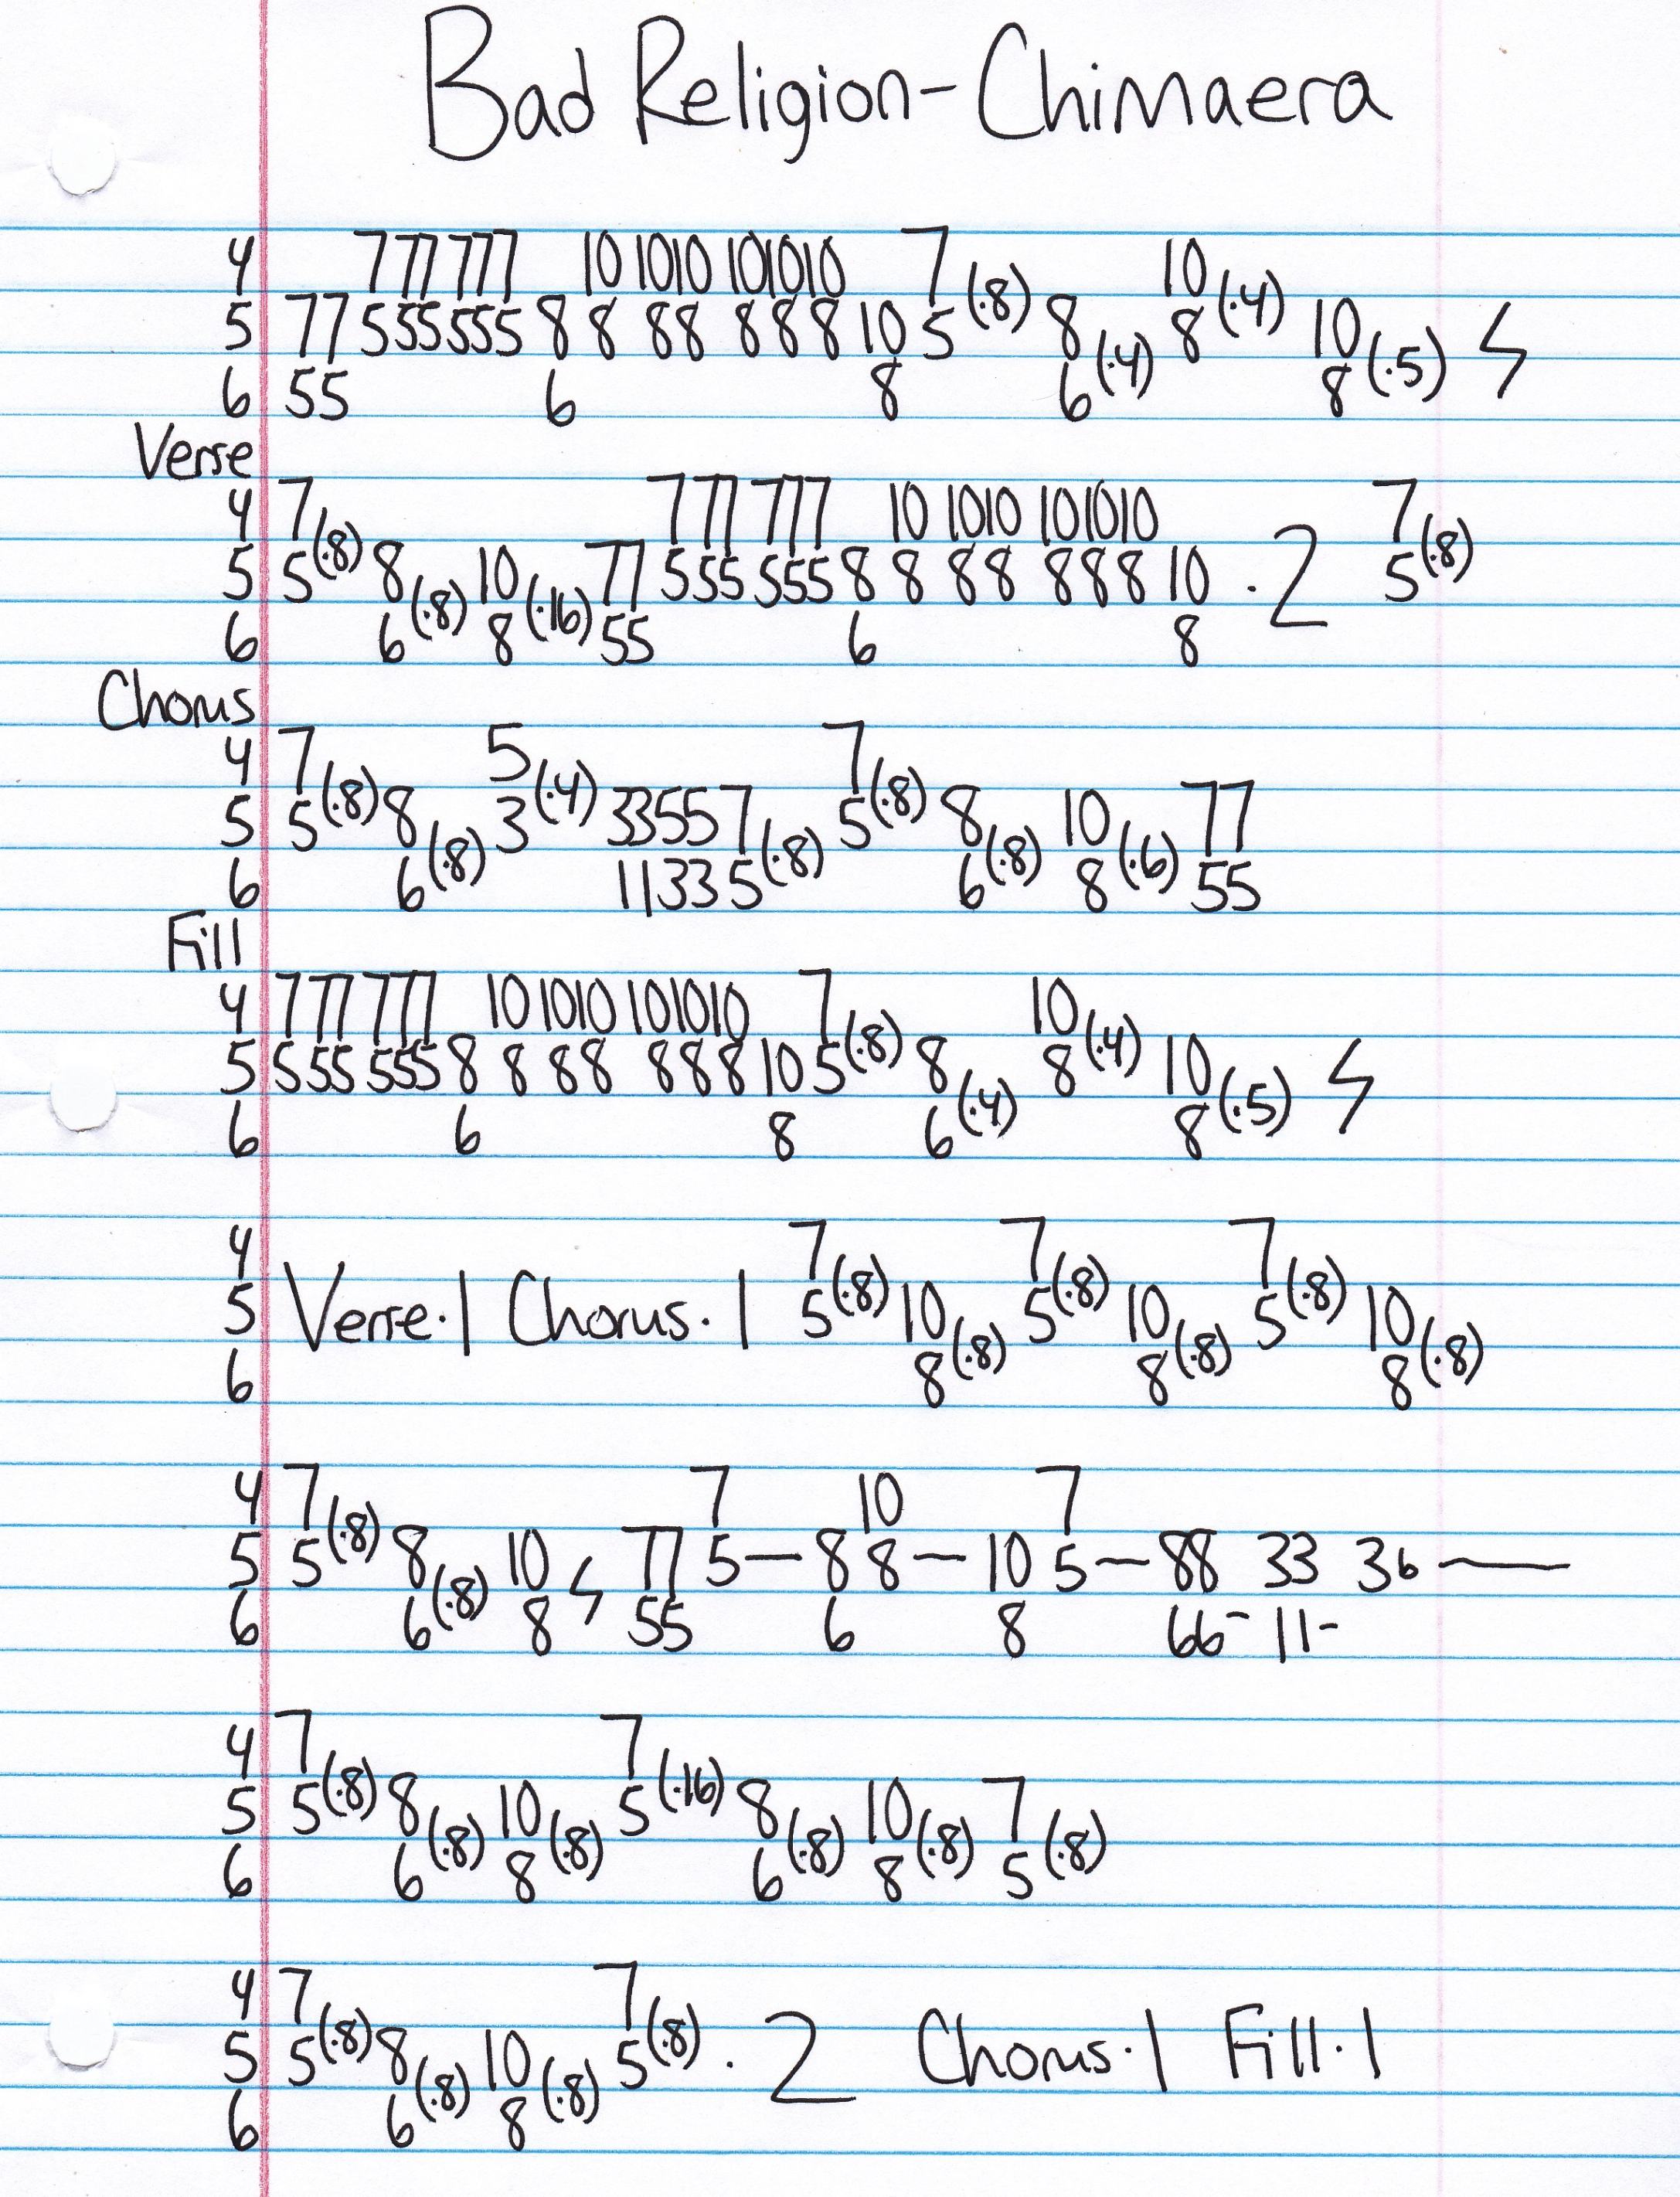 Bad Religion - Chimaera
4 7 77 777 10 1010 101010 7 (.8) 10 (.4)
5 77 5 55 555 8 8 88 888 10 5 8 (.4) 8 10 (.5) ϟ
6 55 6 8 6 8
Verse
4 7 (.8) 7 77 777 10 1010 101010 7 (.8)
5 5 8 (.8) 10 (.16) 77 5 55 555 8 8 88 888 10 . 2 5
6 6 8 55 6 8
Chorus
4 7 (.8) 5 (.4) 7 (.8)
5 5 8 (.8) 3 33 55 7 (.8) 5 8 (.8) 10 (.6) 77
6 6 11 33 5 6 8 55
Fill
4 7 77 777 10 1010 101010 7 (.8) 10 (.4)
5 5 55 555 8 8 88 888 10 5 8 (.4) 8 10 (.5) ϟ
6 6 8 6 8
4 7 (.8) 7 (.8) 7 (.8)
5 Verse . 1 Chorus . 1 5 10 (.8) 5 10 (.8) 5 10 (.8)
6 8 8 8
4 7 (.8) 7 10 7
5 5 8 (.8) 10 ϟ 77 5 — 8 8 — 10 5 — 88 33 36 ——
6 6 8 55 6 8 66 - 11 -
4 7 (.8) 7 (.16)
5 5 8 (.8) 10 (.8) 5 8 (.8) 10 (.8) 7 (.8)
6 6 8 6 8 5
4 7 (.8) 7 (.8)
5 5 8 (.8) 10 (.8) 5 . 2 Chorus . 1 Fill . 1
6 6 8